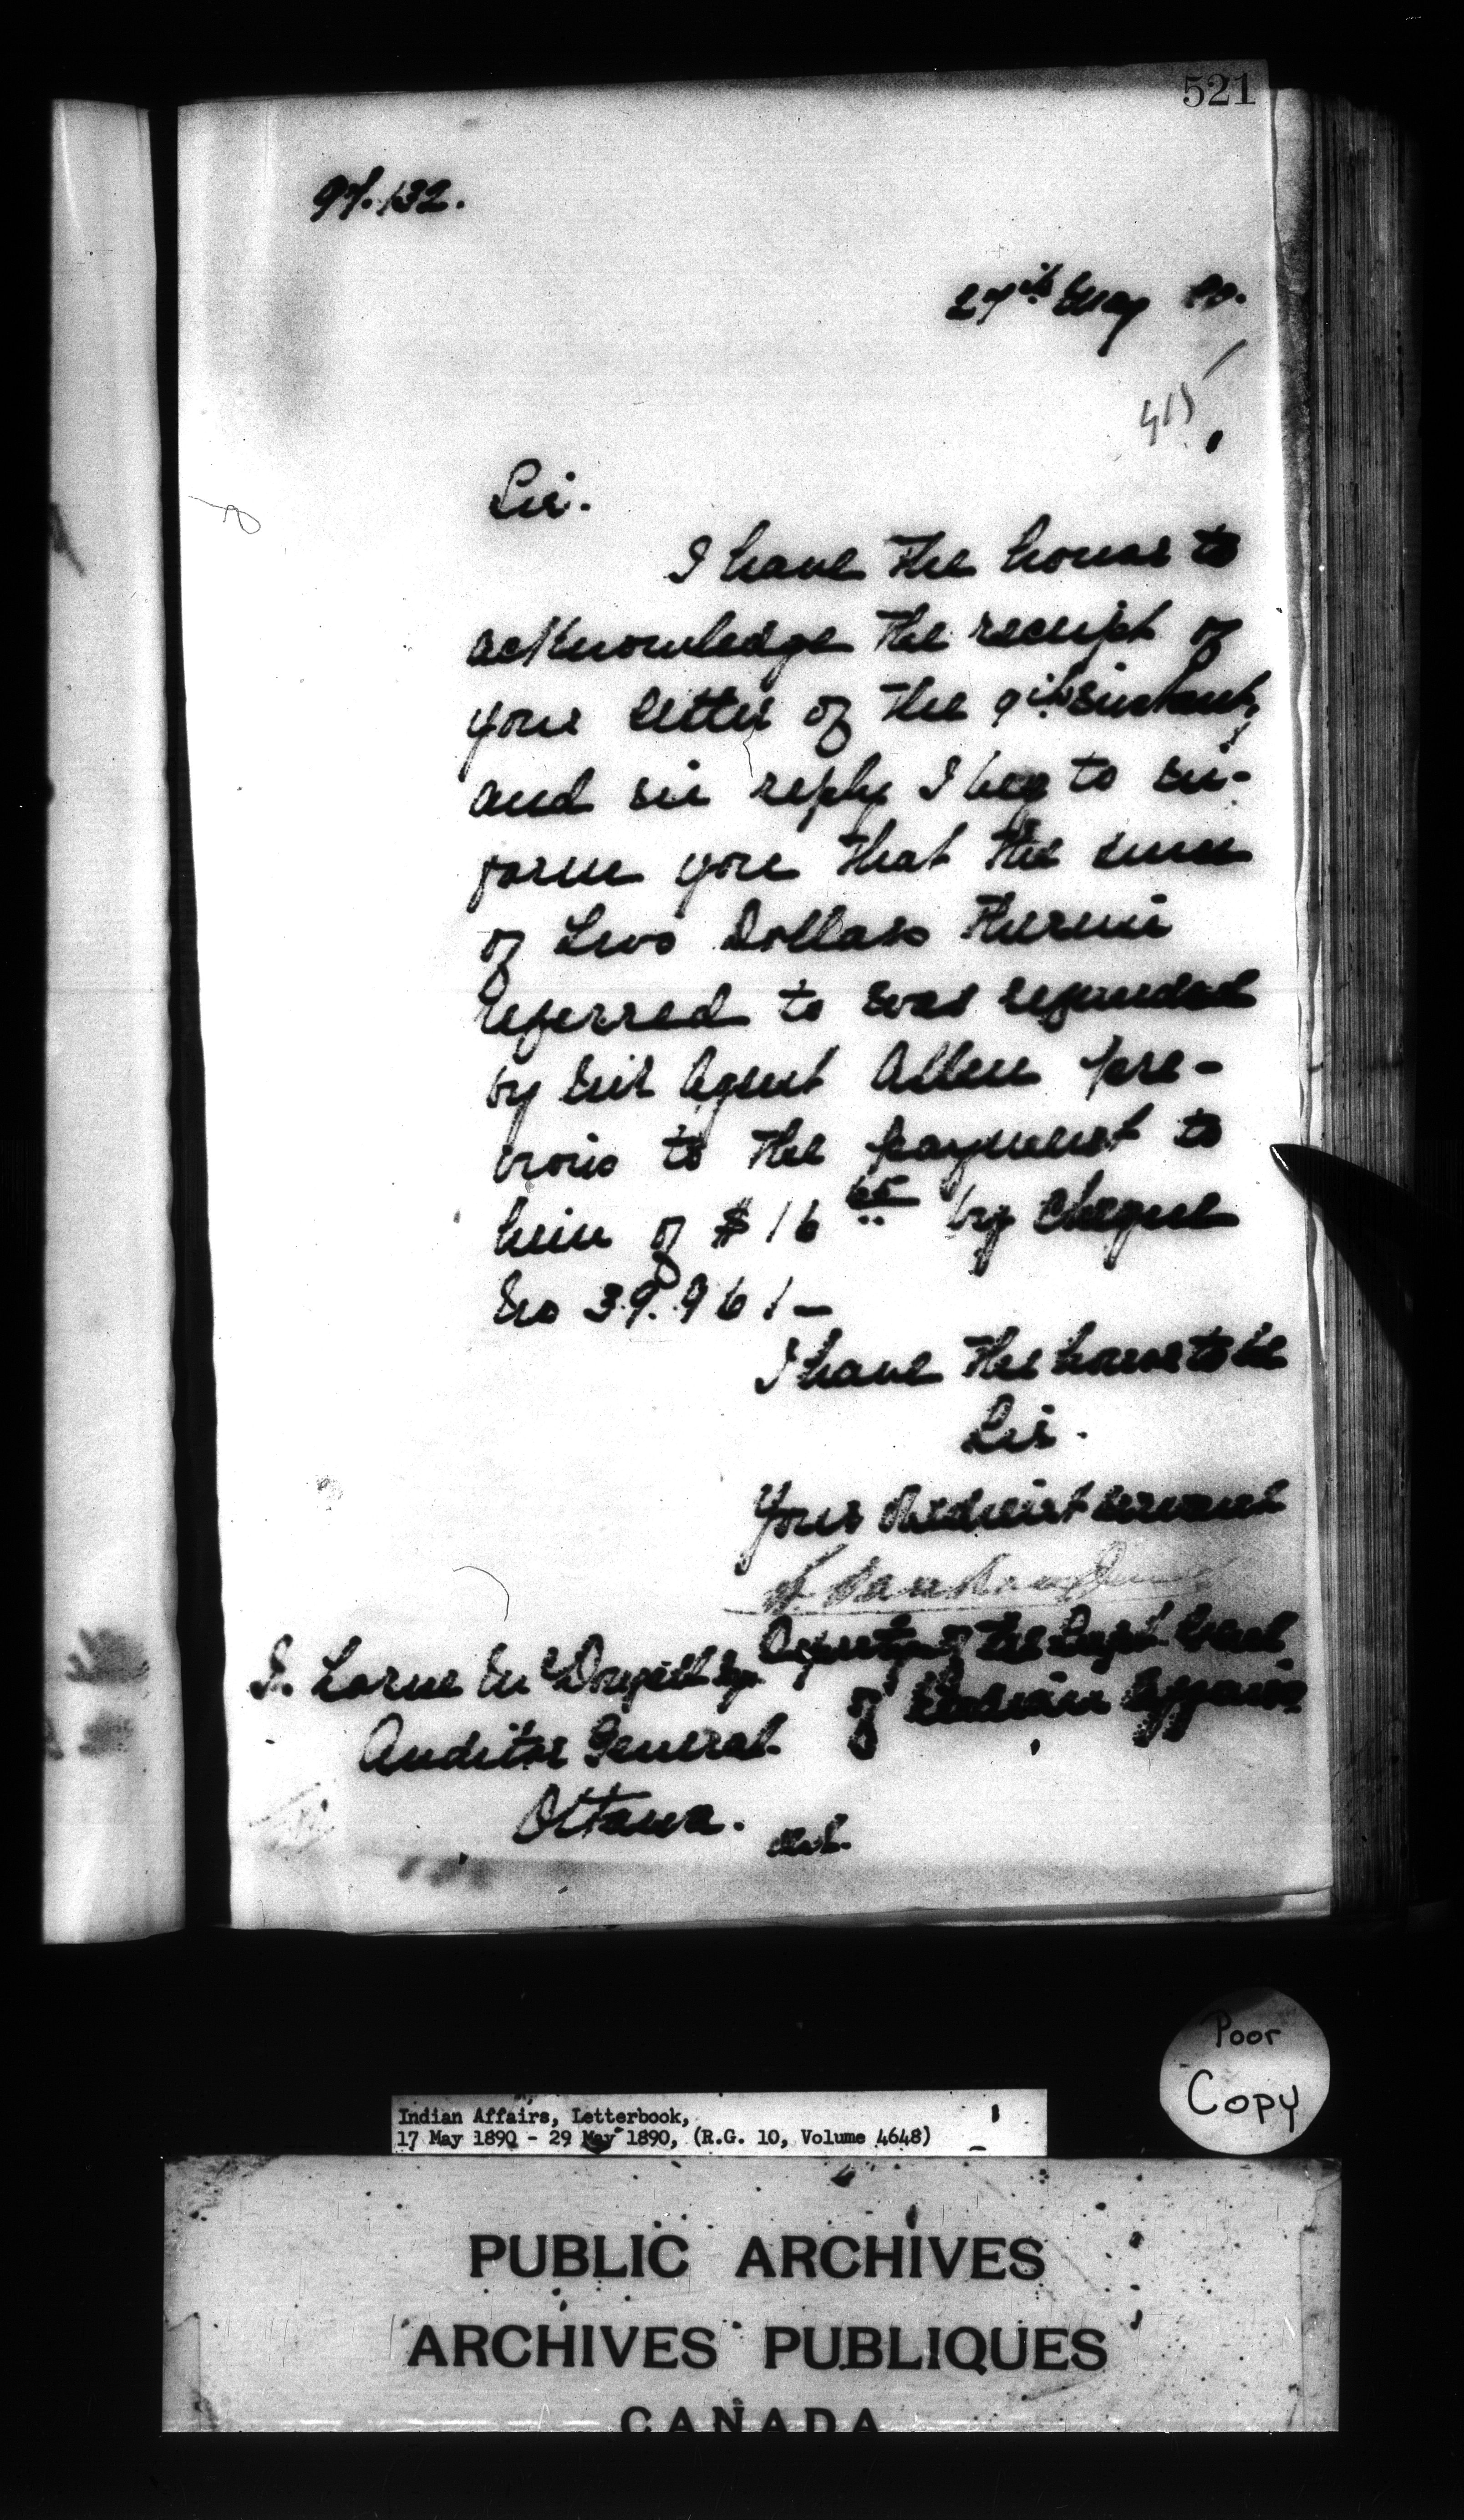 521
97.132.
27th May 90.
415
Sir.
I have the honor to
acknowledge the receipt of
your letter of the 9th instant,
and in reply I beg to in-
form you that the sum
of Two Dollars therein
referred to was refunded
by Agent Allen pre-
vious to the payment to
him of $16 65 by cheque
No 39.961 –
I have the honor to be
Sir.
Your obedient servant
L. Vankoughnet
Deputy of the Supt. Genl
of Indian Affairs
J. Lorne McDougall Esq.
Auditor General.
Ottawa.
Poor
Copy
Indian Affairs, Letterbook,
17 May 1890 - 29 May 1890, (R.G. 10, Volume 4648)
PUBLIC ARCHIVES
ARCHIVES PUBLIQUES
CANADA